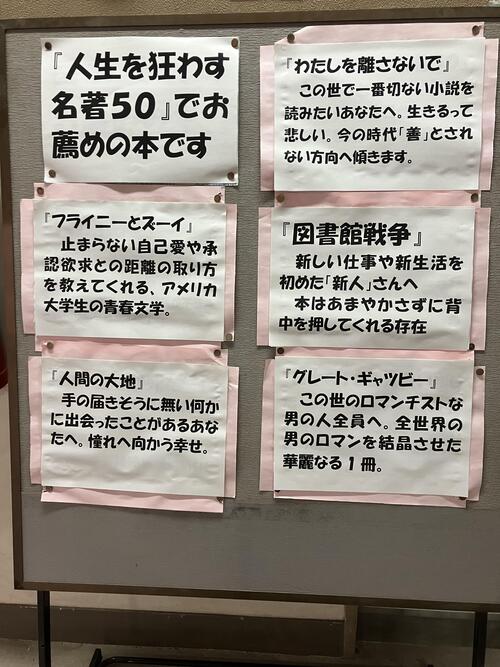 『人生を狂わす
名著50』でお
薦めの本です
『わたしを離さないで』
この世で一番切ない小説を
読みたいあなたへ。生きるって
悲しい。今の時代「善」とされ
ない方向へ傾きます。
『フライニーとズーイ』
止まらない自己愛や承
認欲求との距離の取り方
を教えてくれる、アメリカ
大学生の青春文学。
『図書館戦争』
新しい仕事や新生活を
初めた「新人」さんへ
本はあまやかさずに背
中を押してくれる存在
『人間の大地』
手の届きそうに無い何か
に出会ったことがあるあな
たへ。憧れへ向かう幸せ。
『グレート・ギャツビー』
この世のロマンチストな
男の人全員へ。全世界の
男のロマンを結晶させた
華麗なる1冊。